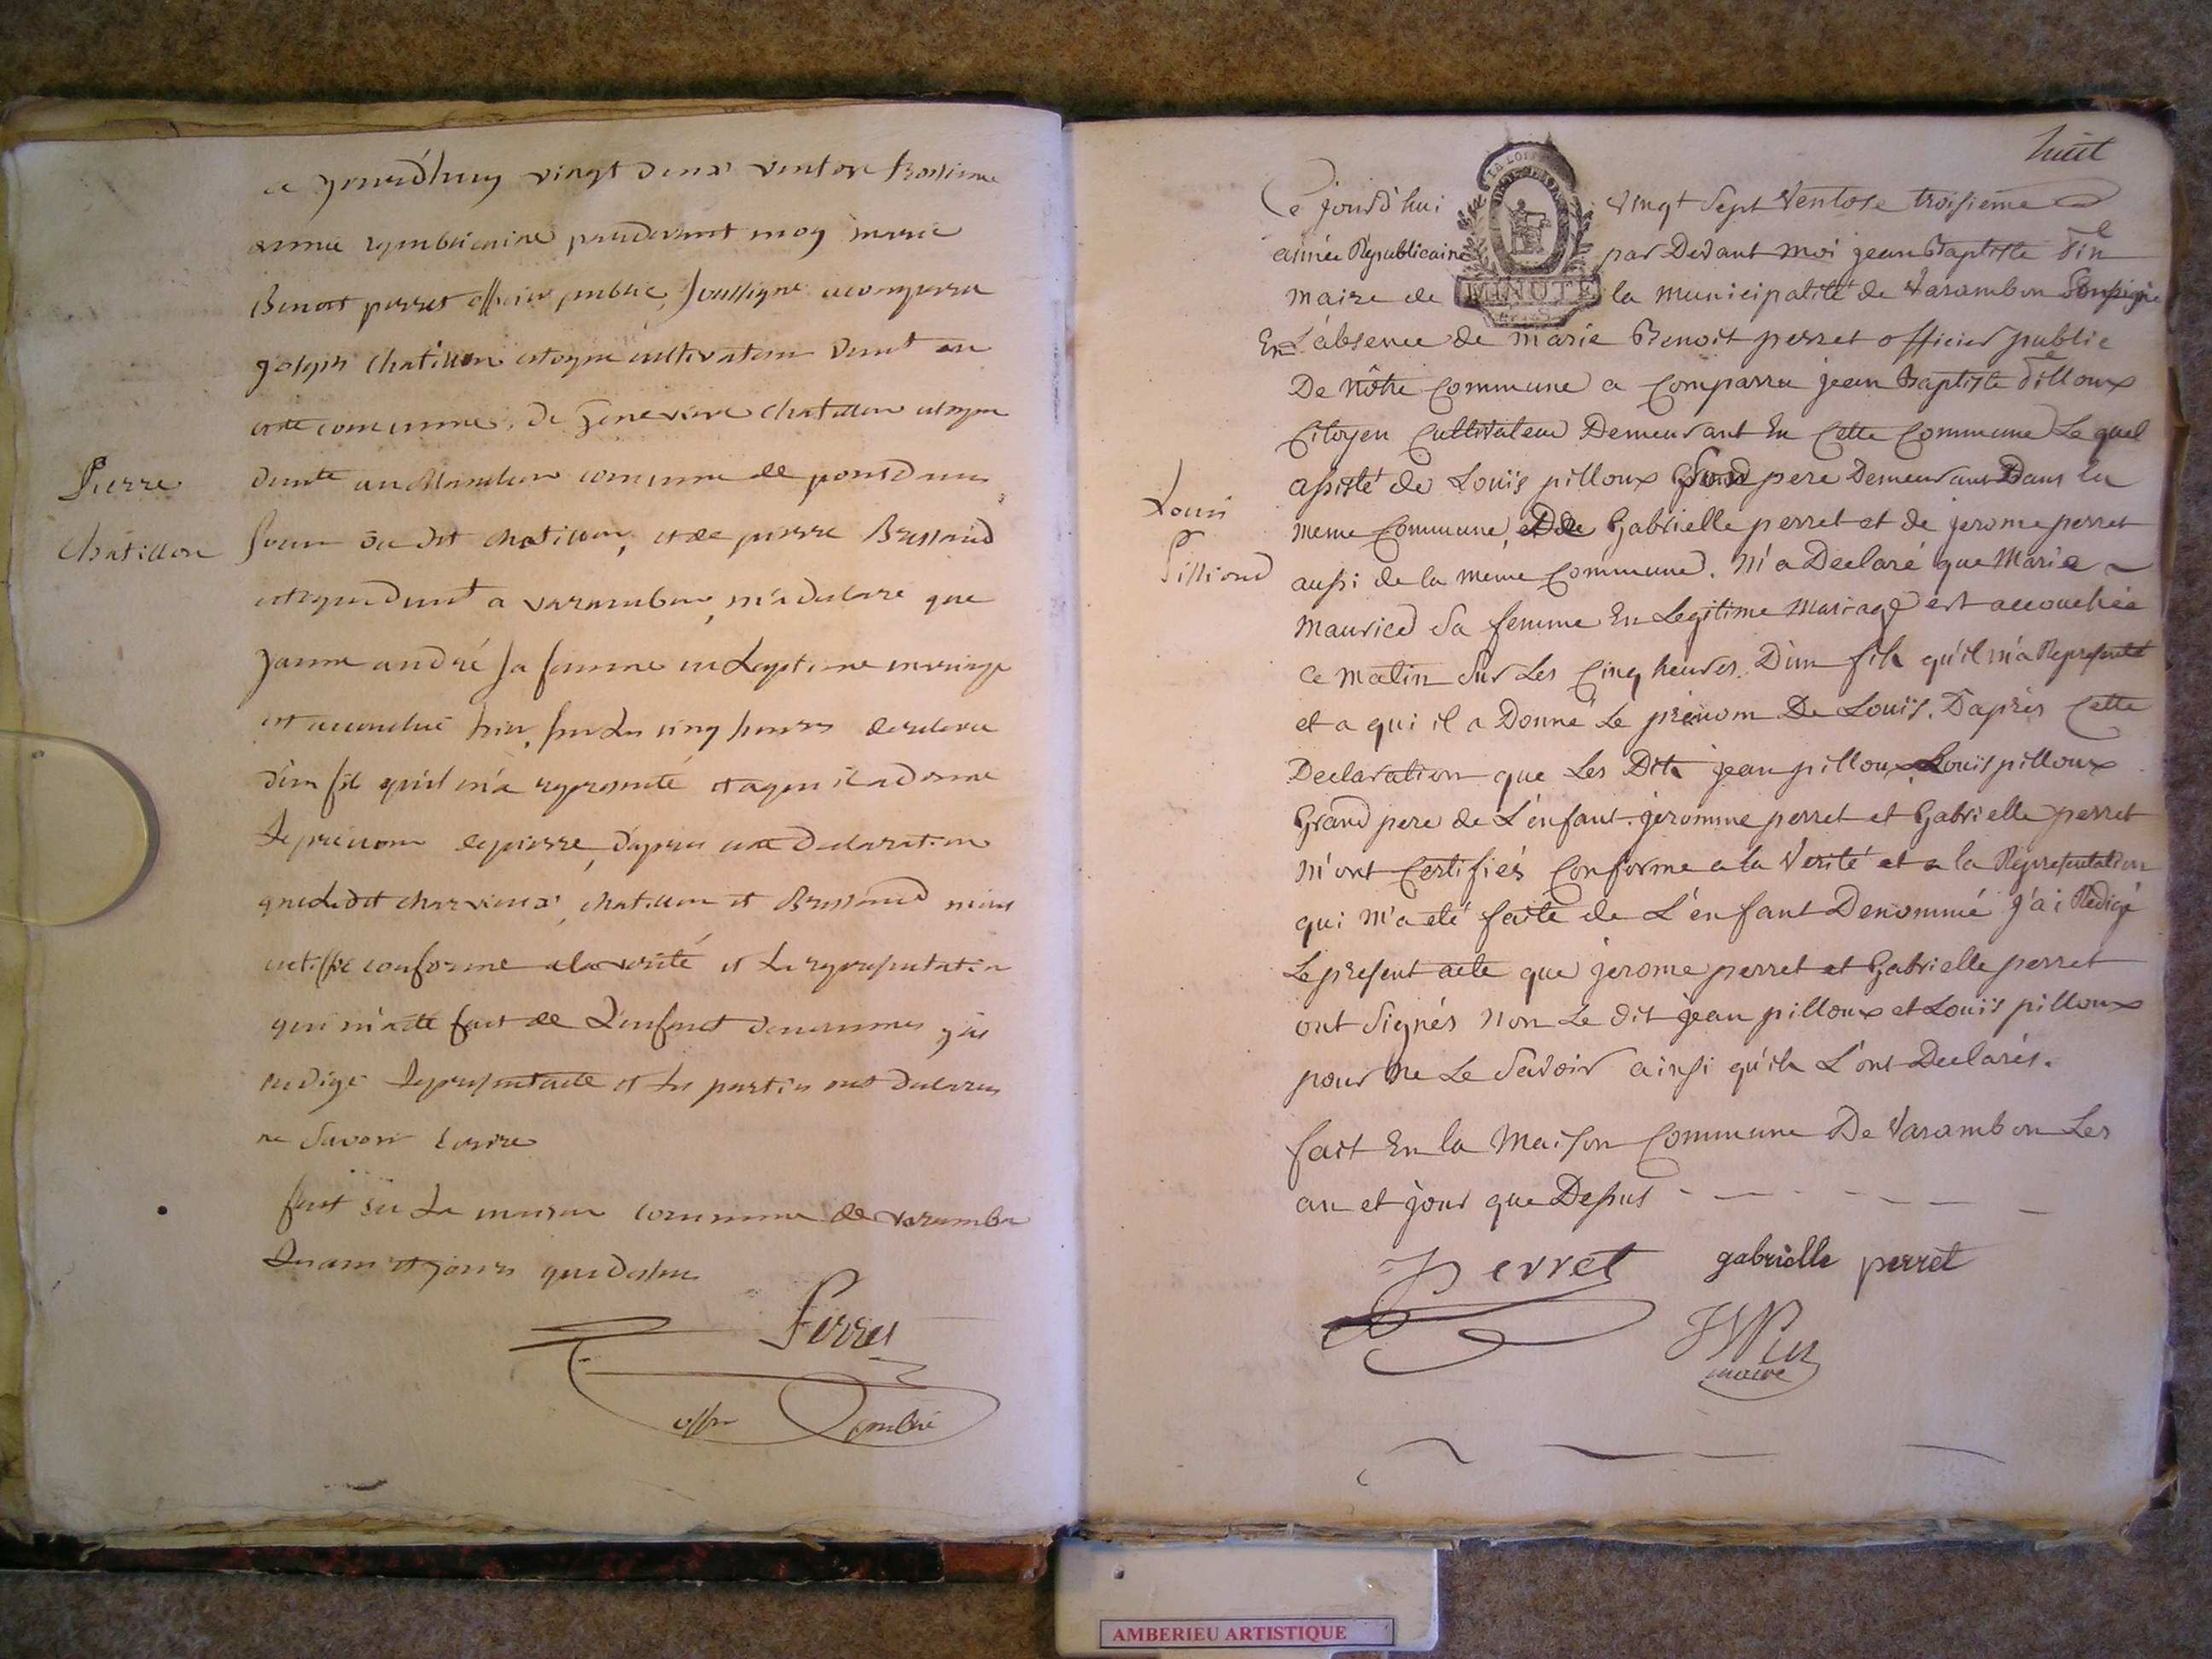 ce jourdhuy vingt deux ventose troisieme
année republicaine pardevant moy marie
Benoit perret officier public soussigné a comparu
joseph chatillon citoyen cultivateur demt en
cette commune, de genevieve chatillon citoyene
demte au commune de pontdains
Pierre
Chatillon
soeur du dit chatillon, et de pierre Brossard
demt a varambon, m'a declaré que
janne andré sa femme en legitime mariage
est accouché hier, sur les cinq heures
d'un fils qu'il m'a representé et a qui il a donné
le prenom de pierre, d'apres cette declaration
que le dit chatillon et Brossard m'ont
certiffié conforme a la verité et la representation
qui m'a eté fait de L'enfant denommés j'ai
redigé le present acte et les parties ont declarés
ne savoir ecrire
fait en la maison commune de varambon
Les an et jours que dessus
Perret
offr public
huit
Ce jourd'hui vingt Sept Ventose troisieme
année Républicaine par Devant moi jean Baptiste Vin
MINUTE
maire de la municipalité de Varambon Soussigné
En L'absence de marie Benoit perret officier public
De nôtre Commune a Comparru jean Baptiste Pilloux
Citoyen Cultivateur Demeurant En Cette Commune Le quel
assisté de Louïs pilloux Grand pere Demeurant Dans la
Louis
Pillioud
meme Commune, et De Gabrielle perret et de jerome perret
aussi de la meme Commune. M'a Declaré que Marie
Maurice Sa femme En Legitime Mariage est accouchée
Ce matin Sur Les Cinq heures. D'un fils qu'il m'a Representé
et a qui il a Donné Le prénom De Louïs. D'après Cette
Declaration que Les Dits jean pilloux, Louïs pilloux
Grand pere de L'enfant. jeromme perret et Gabrielle perret
m'ont Certifiés Conforme a la Verité et a la Representation
qui m'a eté faite de L'enfant Denommé j'ai Redigé
Le present acte que jerome perret et Gabrielle perret
ont Signés non Le dit jean pilloux et Louïs pilloux
pour ne Le Savoir ainsi qu'ils L'ont Declarés.
fait En la Maison Commune De Varambon Les
an et jour que Dessus
Perret gabrielle perret
maire
AMBERIEU ARTISTIQUE